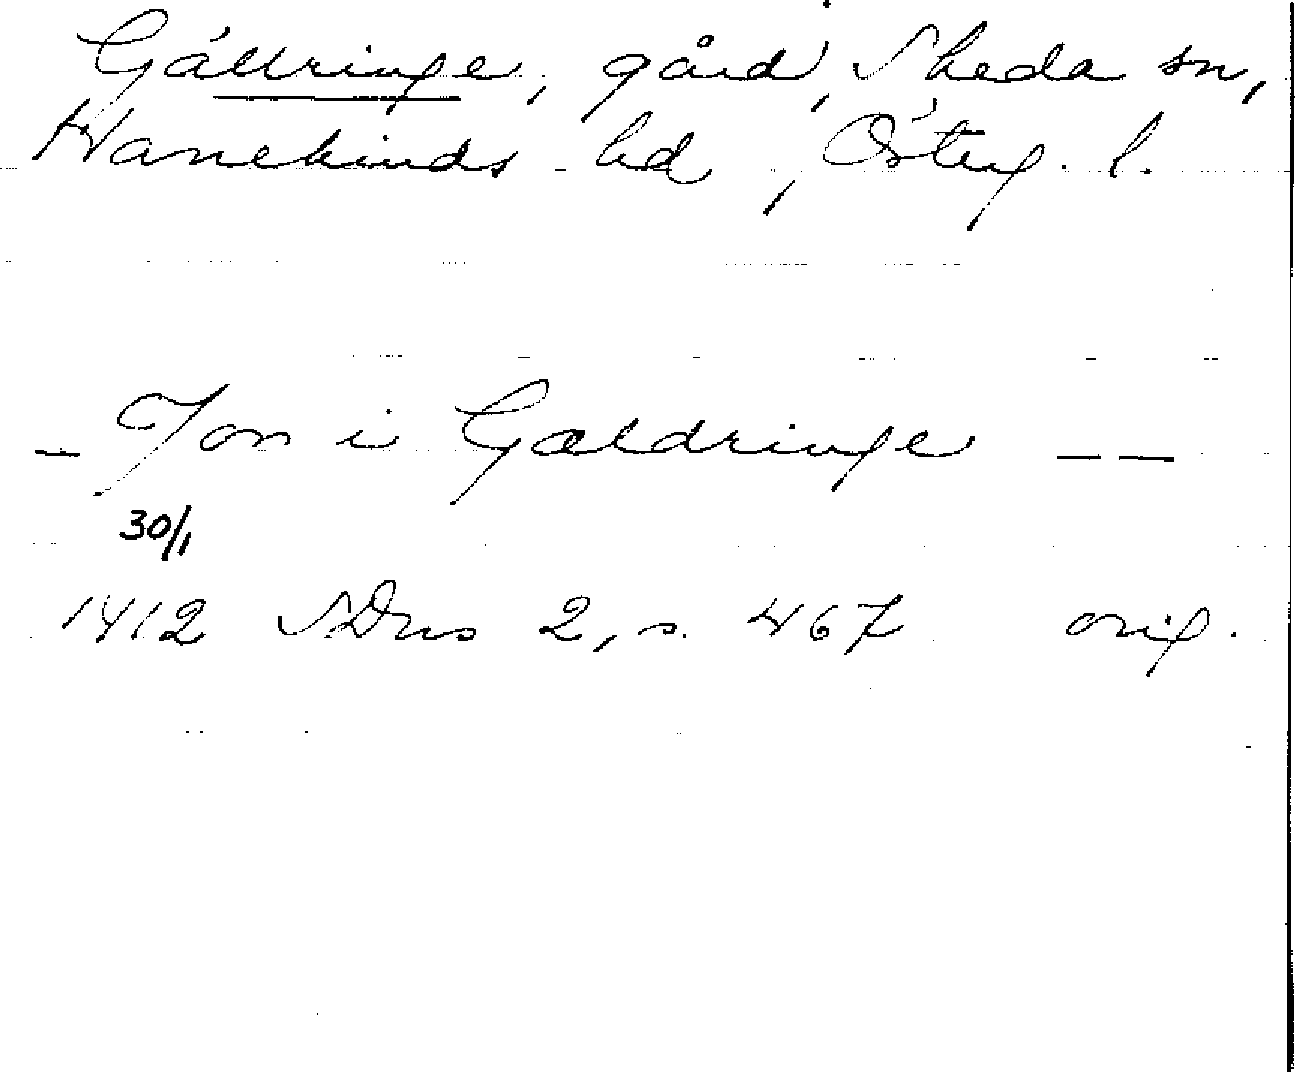 Gällringe, gård, Skeda sn,
Hanekinds hd, Österg. l.
– Jon i Gældringe – –
30/1
1412 SDns 2, s. 467 orig.